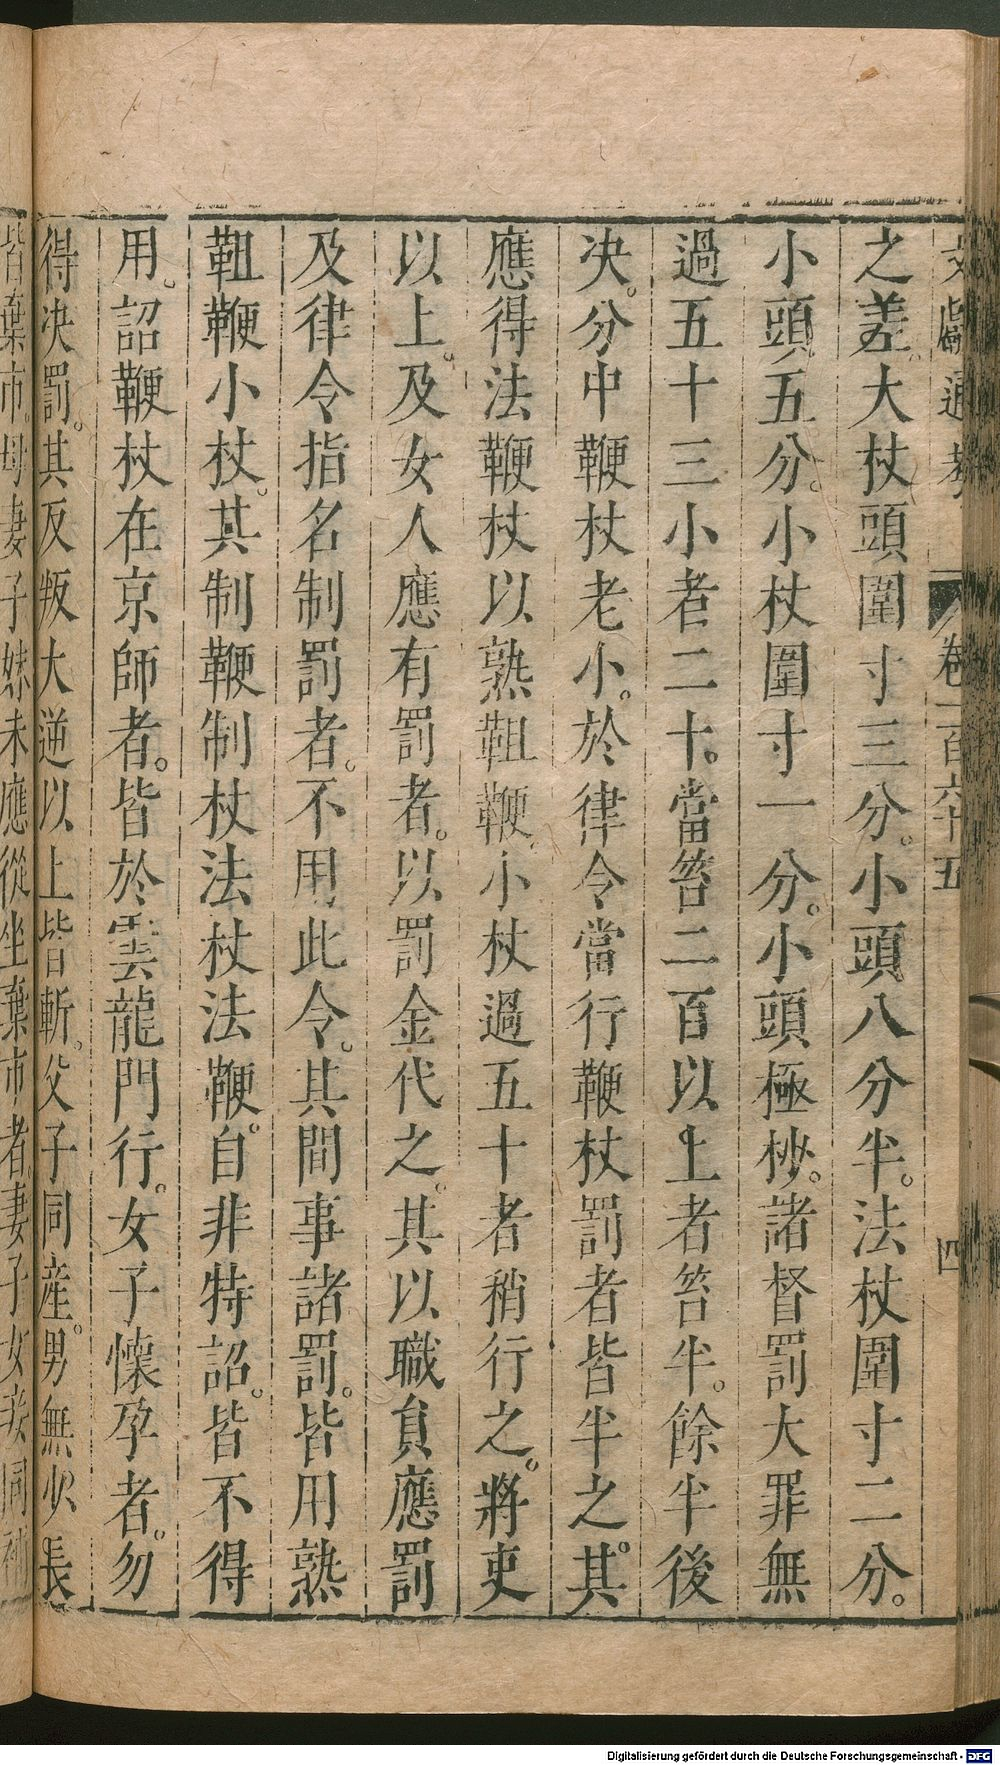 文獻通考 卷一百六十五 四
之差。大杖頭圍寸三分。小頭八分半。法杖圍寸二分。
小頭五分。小杖圍寸一分。小頭極杪。諸督罰大罪無
過五十三小者二十。當笞二百以上者笞半。餘半後
决。分中鞭杖老小。於律令當行鞭杖罰者皆半之。其
應得法鞭杖以熟靼鞭。小杖過五十者稍行之。將吏
以上。及女人應有罰者。以罰金代之。其以職負應罰
及律令指名制罰者。不用此令。其間事諸罰。皆用熟
靼鞭小杖。其制鞭制杖法杖法鞭。自非特詔。皆不得
用。詔鞭杖在京師者。皆於雲龍門行。女子懷孕者。勿
得决罰。其反叛大逆以上皆斬。父子同産。男無少長
皆棄市。母妻子妹未應從坐棄市者。妻子女妾同補
Digitalisierung gefördert durch die Deutsche Forschungsgemeinschaft - DFG